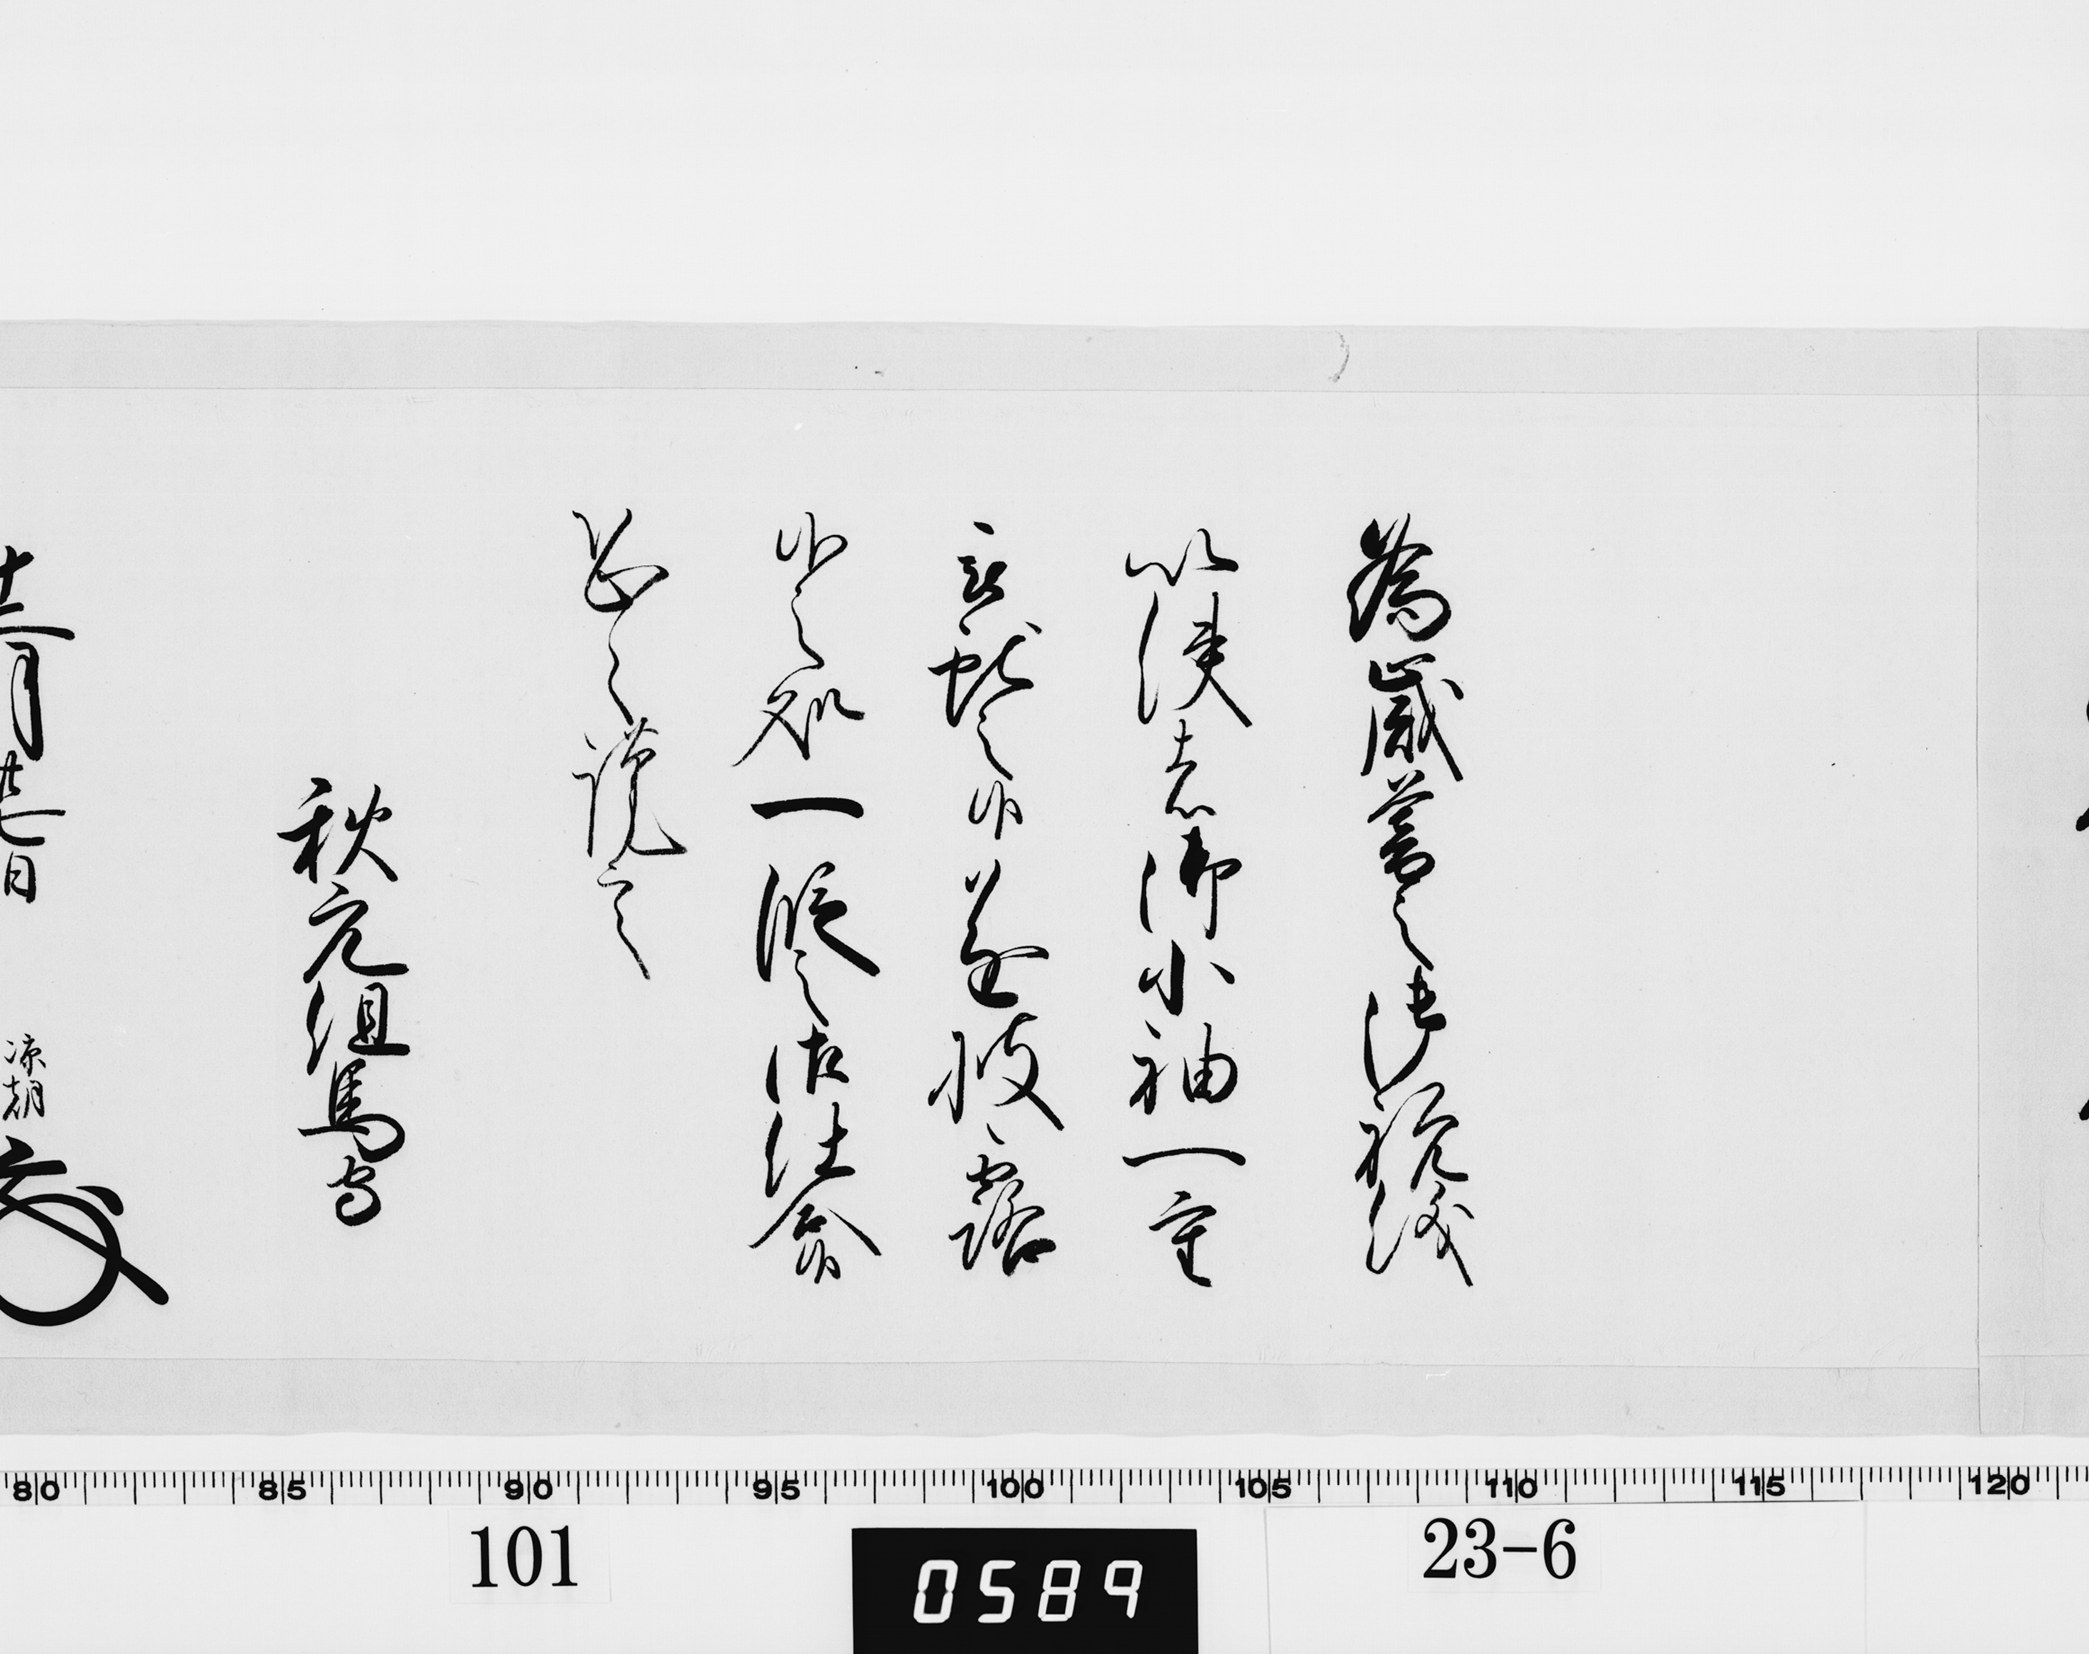 為歳暮之御祝儀
以使者御小袖一重
被献之候遂披露
候之処一段之御仕合候
恐々謹言
秋元但馬守
十二月廿七日 凉朝
80 85 90 95 100 105 110 115 120
101
0589
23-6